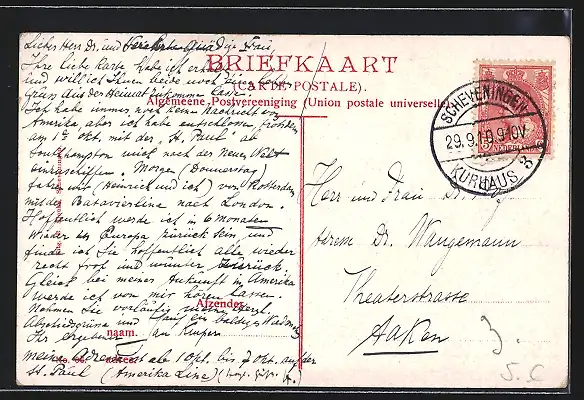 Liebes Herr Dr. und Verehrte Gnädige Frau,
Ihre liebe Karte habe ich
und will ich Ihnen beide noch
Gruss aus der Heimat zukommen lassen.
Ich habe immer noch keine Nachricht
Amerika aber ich habe entschlossen
am 1 Okt. mit der "St. Paul" ab
Southhampton mich nach der Neuen Welt
einzuschiffen. Morgen (Donnerstag)
fahren wir (Heinrich und ich) von Rotterdam
mit der Batavierline nach London.
Hoffentlich werde ich in 6 Monaten
wieder in Europa zurück sein und
finde ich Sie hoffentlich alle wieder
recht froh und munter zurück
Gleich bei meiner Ankunft in Amerika
werde ich von mir hören lassen.
Nehmen Sie vorläufig meine herzl.
Abschiedsgrüsse und auf ein baldiges
Ihr ergebener
meine Adresse ist ab 1 Okt. bis 7 Okt. auf der
St. Paul (Amerika Line)
BRIEFKAART
(CARTE POSTALE).
Algemeene Postvereeniging (Union postale universelle)
Afzender
naam.
NEDERLAND
SCHEVENINGEN
29.9.10 9-10V
KURHAUS 3
Herrn und Frau Dr.
Adresse Dr. Wangemann
Theaterstrasse
Aaken